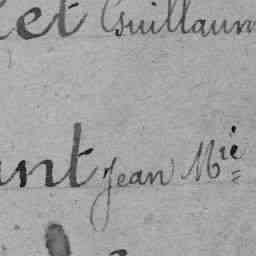 et Guillaum
ant Jean M^ie